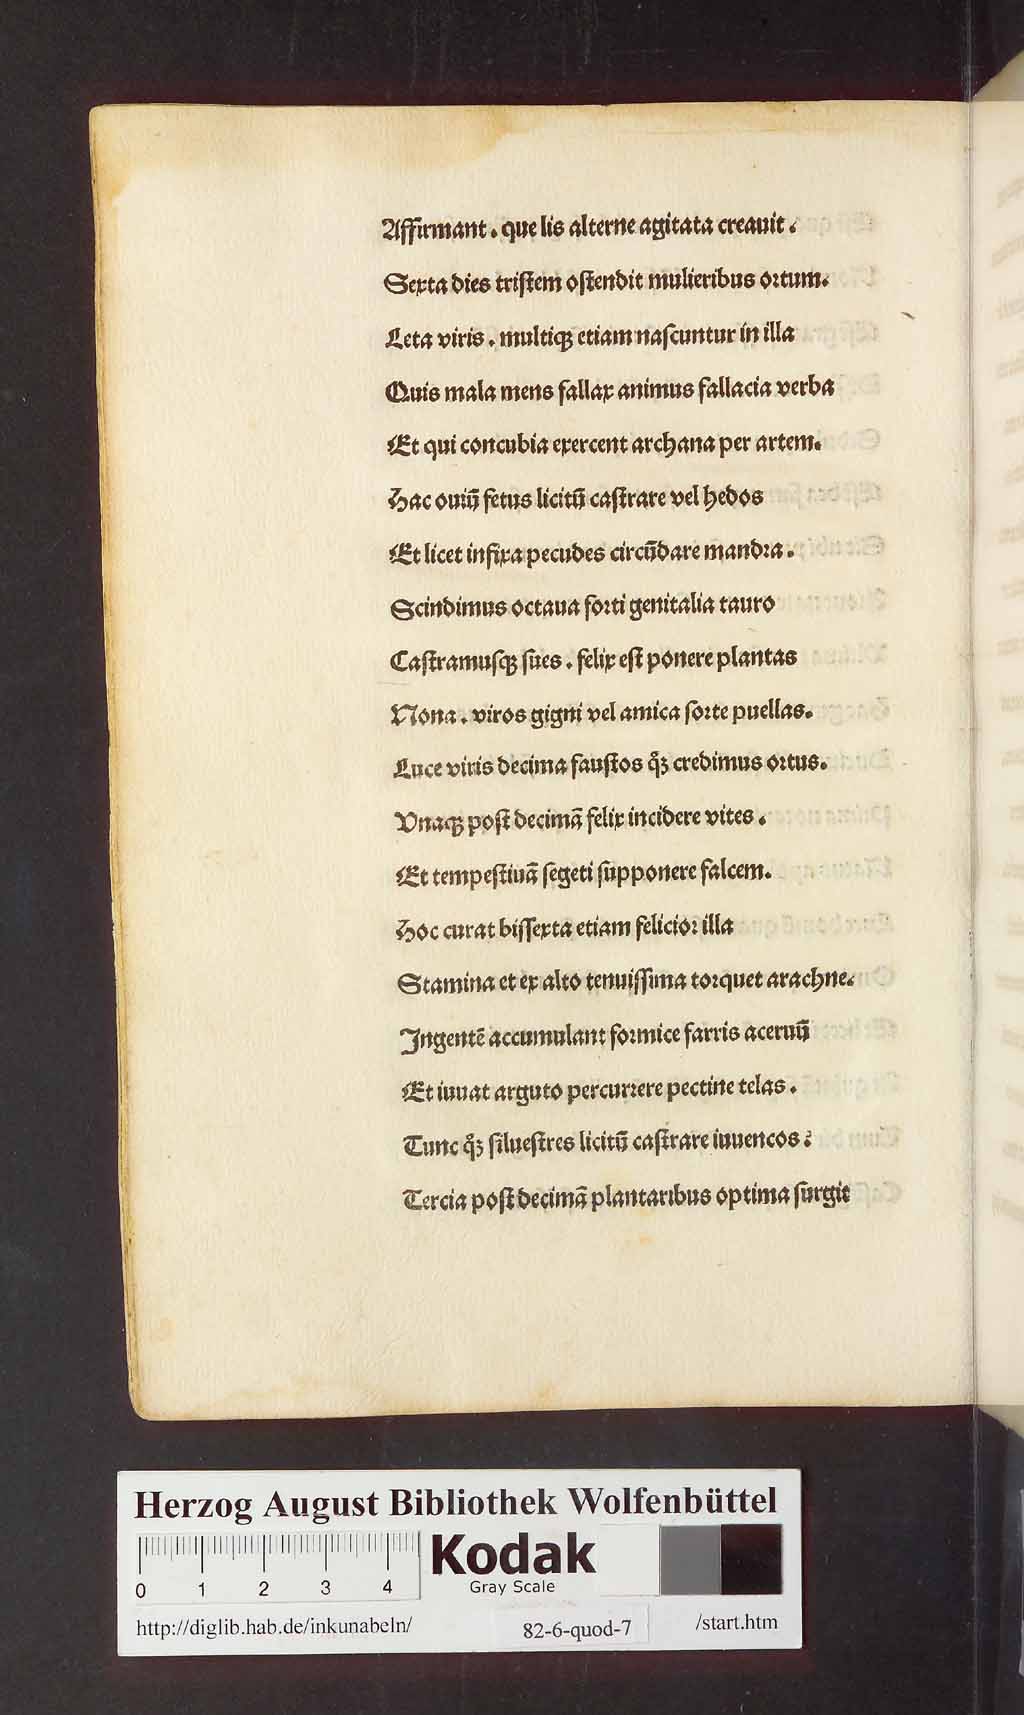 Affirmant . que lis alterne agitata creauit .
Sexta dies tristem ostendit mulieribus ortum.
Leta viris . multiqꝫ etiam nascuntur in illa
Quis mala mens fallax animus fallacia verba
Et qui concubia exercent archana per artem.
Hac ouiū fetus licitū castrare vel hedos
Et licet infixa pecudes circūdare mandra .
Scindimus octaua forti genitalia tauro
Castramusqꝫ sues . felix est ponere plantas
Nona . viros gigni vel amica sorte puellas.
Luce viris decima faustos qͦꝫ credimus ortus.
Vnaqꝫ post decimā felix incidere vites .
Et tempestiuā segeti supponere falcem.
Hoc curat bissexta etiam felicior illa
Stamina et ex alto tenuissima torquet arachne.
Ingentē accumulant formice farris aceruū
Et iuuat arguto percurrere pectine telas .
Tunc qͦꝫ siluestres licitū castrare iuuencos :
Tercia post decimā plantaribus optima surgit
Herzog August Bibliothek Wolfenbüttel
0 1 2 3 4
Kodak
Gray Scale
http://diglib.hab.de/inkunabeln/ 82-6-quod-7 /start.htm